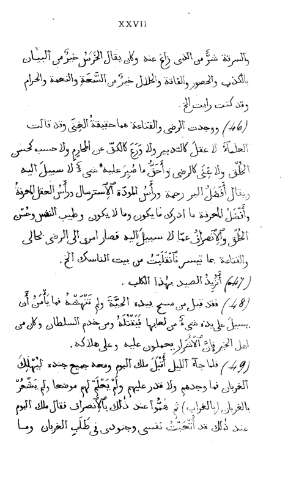 XXVII
والسرقة شرًّا من الغنى زاغ عنه وكان يقال الخرس خير من البيان
بالكذب والحصور والفاقة والحلال خير من السَّعة والنعمة والحرام
وقد كنت رأيت الخ.
(46) ووجدت الرضى والقناعة هما حقيقة الغِنَى وقد قالت
العلماء لا عقل كالتدبير ولا وَرَعَ كالكفِّ عن المحارم ولا حسب كحسن
الخلق ولا غنى كالرضى وأحقُّ ما صُبر عليه شيء لا سبيل اليه
ويقال أَفْضَلُ البر رحمة ورأس المودّة الاسترسال ورأسُ العقل المعرفة
وأفضل المعرفة ما ادرك ما يكون وما لا يكون وطيب النفس وحُسْنِ
الخلق والانصراف عمّا لا سبيل اليه فصار امرى الى الرضى بحالى
والقناعة بما تيسر فانقلبتُ من بيت الناسك الخ.
(47) أُرِيدُ الصيد بهذا الكلب.
(48) فقد قيل من مسح بيده الحيّة ولم تنهشه فما يأمن أن
يسيل على يده شيء من لعابها فيقتله ومن خدم السلطان وكان من
اهل الخير فان الأشرار يحملون عليه وعلى هلاكه.
(49) فلما جاء الليل أقبل ملك البوم ومعه جميع جنده لِيُهْلِكَ
الغربان فما وجدهم ولا قدر عليهم ولم يَعْلَمْ لهم موضعا ولم يَشْعُرْ
بالغربان (بالغراب) ثم هَمُّوا عند ذلك بالانصراف فقال ملك البوم
عند ذلك قد أتعبت نفسى وجنودى فى طَلَبِ الغربان وما